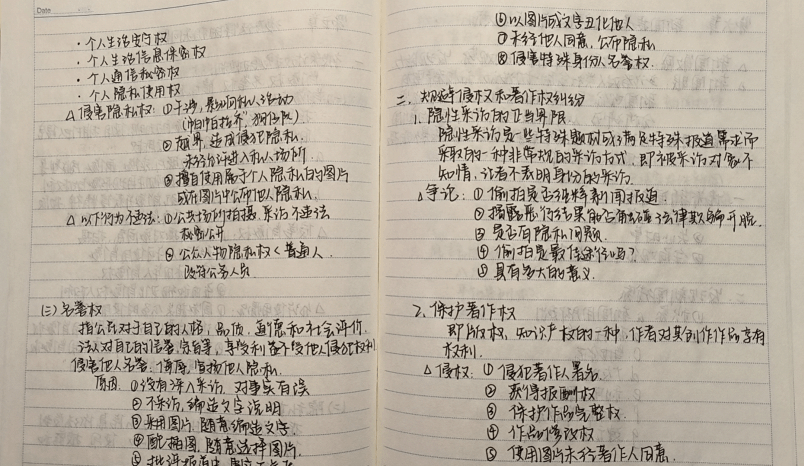 Date
·个人生活安宁权
·个人生活信息保密权
·个人通信秘密权
·个人隐私使用权
△侵害隐私权:①干涉、影响何私人活动
("怕怕拍乔",狗仔队)
②越界,造成侵犯隐私.
未经允许进入私人场所
③擅自使用属于个人隐私的图片
或在图片中公布他人隐私.
△以下行为不违法:①公共场所拍摄、采访不违法
秘密公开
②公众人物隐私权<普通人.
政府公务人员.
(三)名誉权
指公民对于自己的人格,品质,道德和社会评价.
法人对自己的信誉,享受利益不受他人侵犯权利
侵害他人名誉、侮辱、宣扬他人隐私.
原因:①没有深入采访,对事实有误
②不采访,编造文字说明
③采用图片,随意编造文字
④配插图,随意选择图片.
⑤批评报道中
⑥以图片或文字丑化他人
⑦未经他人同意,公布隐私
⑧侵害特殊身份人名誉权.
二、规避侵权和著作权纠纷
1.隐性采访的正当界限
隐性采访是一些特殊题材或满足特殊报道需求而
采取的一种非常规的采访方式,即被采访对象不
知情,记者不表明身份的采访.
△争论:①偷拍是否纯粹新闻报道.
②揭露恶行结果能否触碰法律欺骗开脱.
③是否有隐私问题.
④偷拍是最佳途径吗?
⑤具有多大的意义.
2.保护著作权
即版权,知识产权的一种,作者对其创作作品享有
权利.
△侵权:①侵犯著作人署名.
②获得报酬权
③保护作品完整权.
④作品修改权
⑤使用图片未经著作人同意.